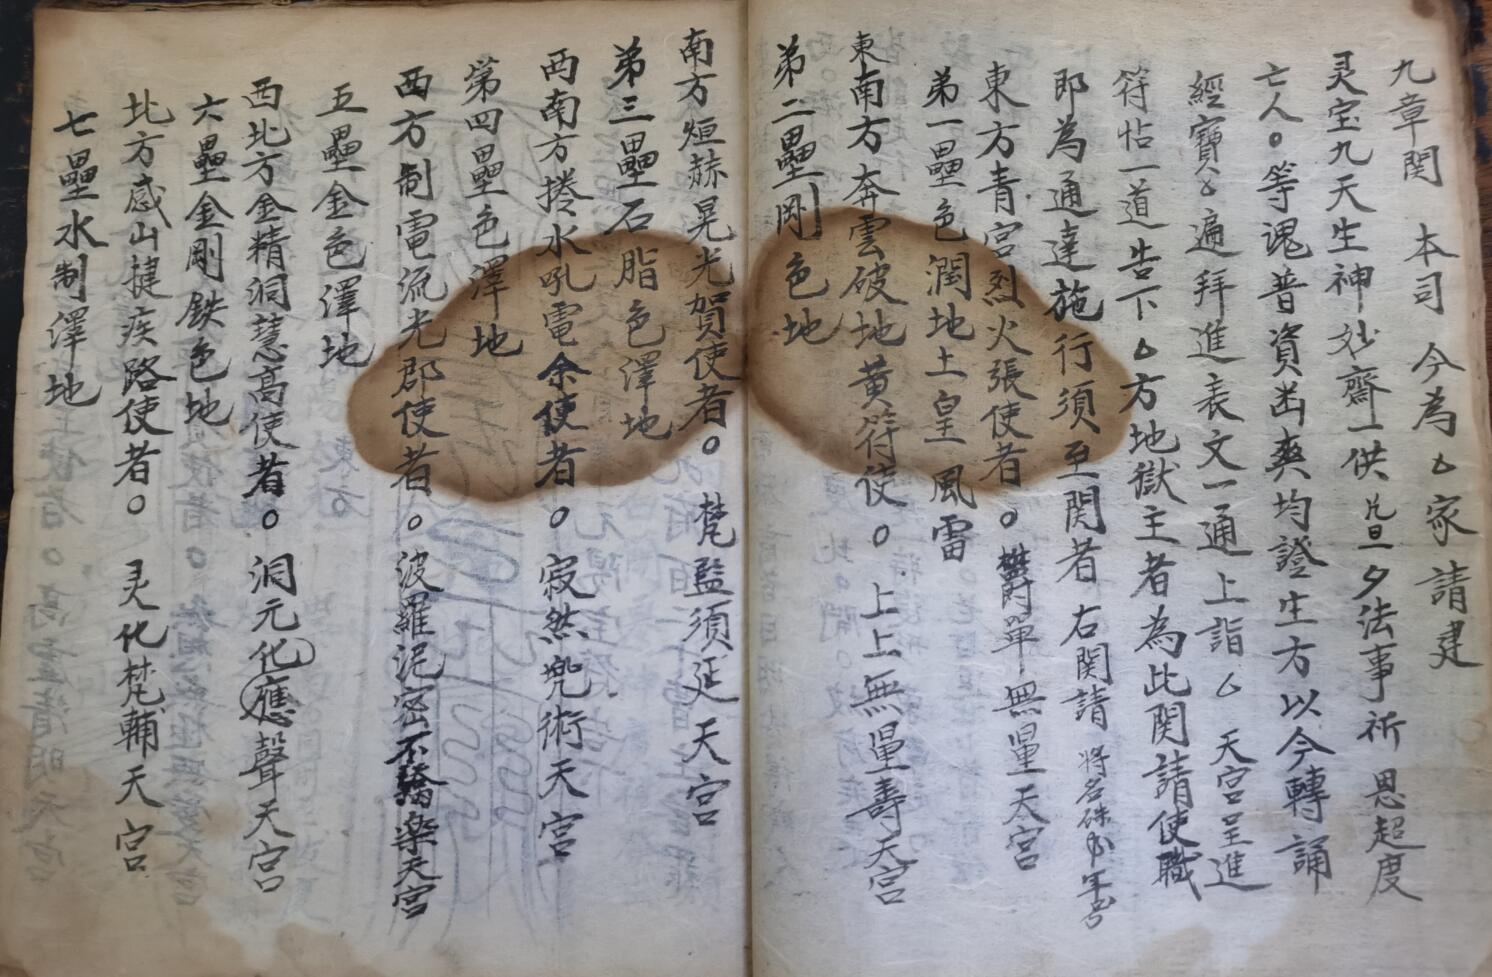 九章関　本司　今為厶家請建
灵宝九天生神妙齋一供凢旦夕法事祈　恩超度
亡人。等魂普資幽爽均證生方以今轉誦
經寶厶遍拜進表文一通上詣厶　天宮呈進
符帖一道告下厶方地獄主者為此関請使職
即為通達施行須至関者　右関請　将名硃
東方青宮烈火張使者。欎單無量天宮
第一壘色潤地土皇　風雷
東南方奔雲破地黄符使。上上無量壽天宮
第二壘剛色地
南方烜赫晃光賀使者。梵監須延天宮
第三壘石脂色澤地
西南方捲水吼電余使者。寂然兠術天宮
第四壘色澤地
西方制電流光郡使者。波羅泥密不驕楽天宮
五壘金色澤地
西北方金精洞慧高使者。洞元化應聲天宮
六壘金剛鉄色地
北方感山揵疾路使者。灵化梵輔天宮
七壘水制澤地